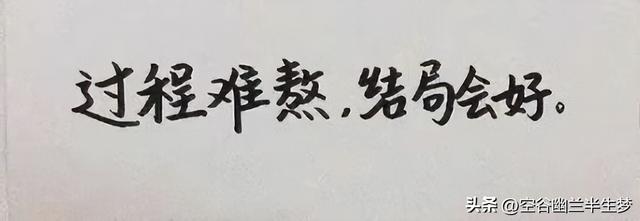 过程难熬,结局会好。
头条 @空谷幽兰半生梦